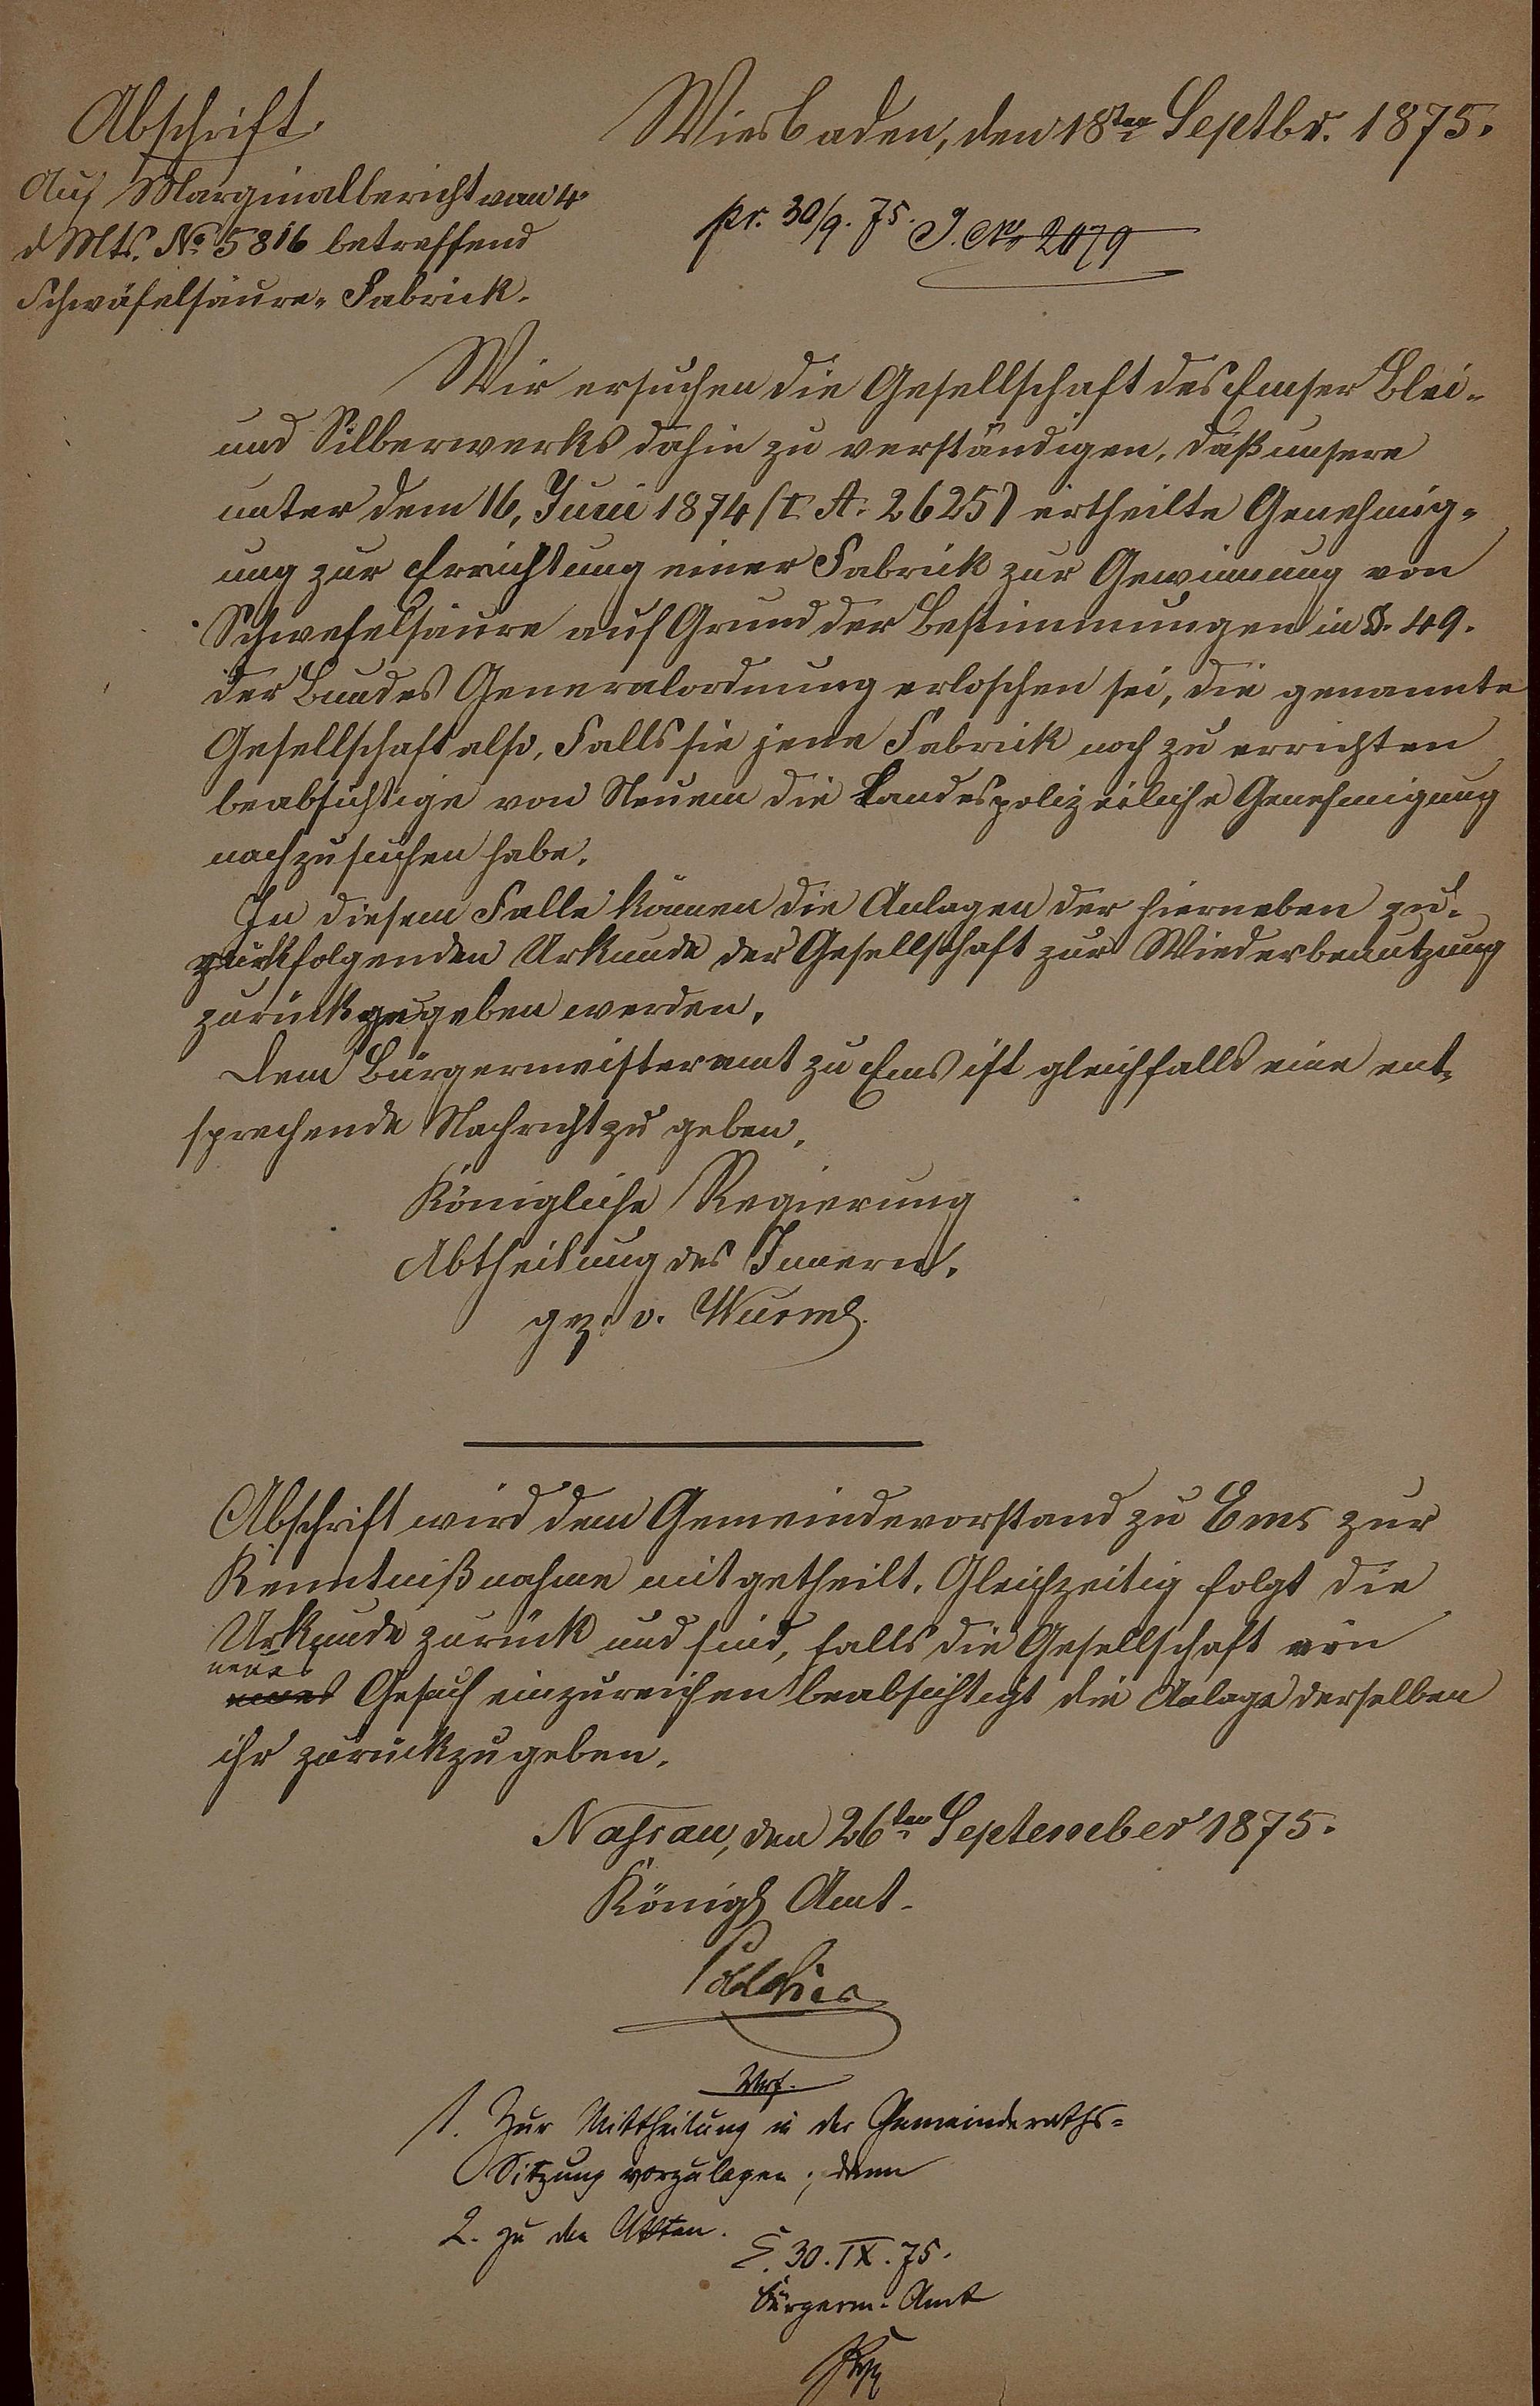 Abschrift.
Wiesbaden, den 18ten Septbr. 1875.
Auf Marginalbericht vom 4.
d Mts. No. 5816 betreffend
Schwäfelsäure-Fabrick.
pr. 30/9. 75. J. No 2079
Wir ersuchen die Gesellschaft des Emser Blei-
und Silberwerks dahin zu verständigen, daß unsere
unter dem 16. Juni 1874 (I. A. 2625) ertheilte Genehmig-
ung zur Errichtung einer Fabrick zur Gewinnung von
Schwefelsäure auf Grund der Bestimmungen in §. 49.
der Bundes Generalordnung erloschen sei, die genannte
Gesellschaft also, Falls sie jene Fabrick noch zu errichten
beabsichtige von Neuem die Landespolizeiliche Genehmigung
nachzusuchen habe.
In diesem Falle können die Anlagen der hierneben zu-
rückfolgenden Urkunde der Gesellschaft zur Wiederbenutzung
zurückgegeben werden.
Dem Bürgermeisteramt zu Ems ist gleichfalls eine ent-
sprechende Nachricht zu geben.
Königliche Regierung
Abtheilung des Innern.
gez. v. Wurmb.
Abschrift wird dem Gemeindevorstand zu Ems zur
Kenntnißnahme mitgetheilt. Gleichzeitig folgt die
Urkunde zurück und sind, falls die Gesellschaft ein
neues
Gesuch einzureichen beabsichtigt die Anlage derselben
ihr zurückzugeben.
Nassau, den 26ten September 1875.
Königl Amt.
Verf.
1. Zur Mittheilung in der Gemeinderaths-
Sitzung vorzulegen; dann
2. zu den Akten.
E. 30. IX. 75.
Bürgerm.-Amt